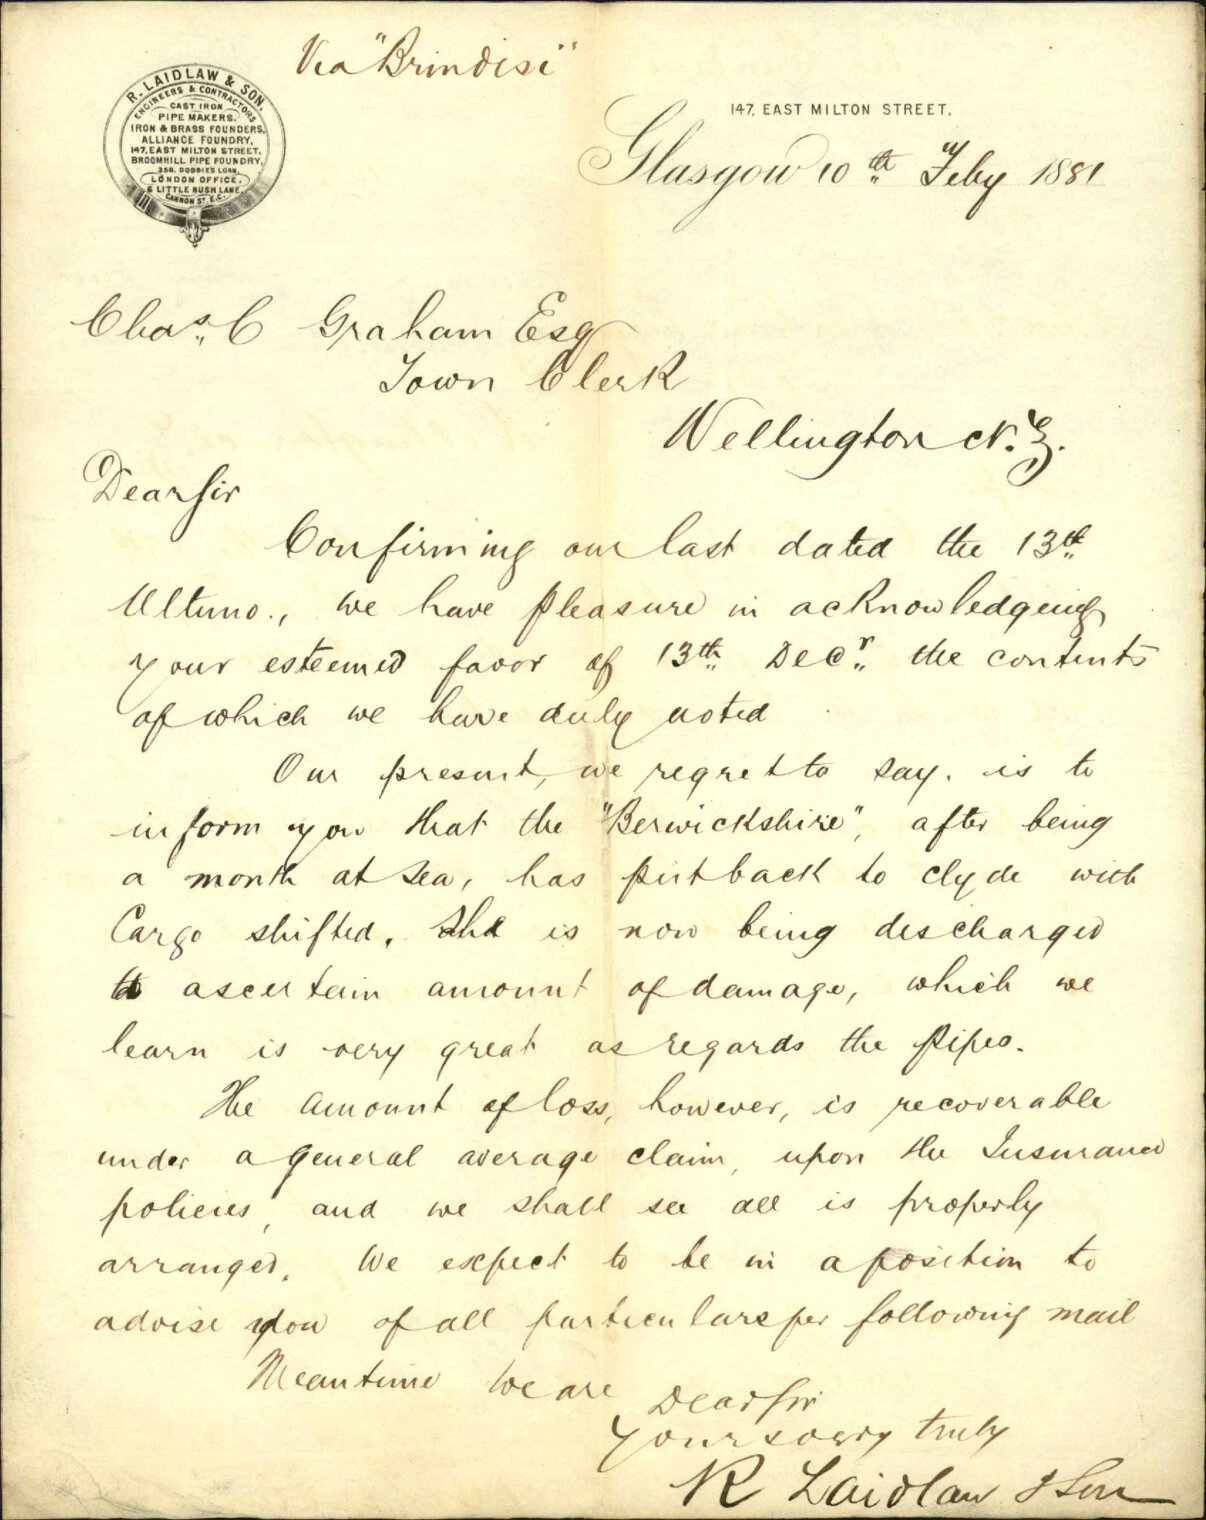 Via "Brindisi"
R. LAIDLAW & SON,
ENGINEERS & CONTRACTORS
CAST IRON
PIPE MAKERS.
IRON & BRASS FOUNDERS,
ALLIANCE FOUNDRY,
147, EAST MILTON STREET.
BROOMHILL PIPE FOUNDRY,
358. DOBBIES LOAN.
LONDON OFFICE.
6 LITTLE BUSH LANE
CANNON ST. E.C.
147, EAST MILTON STREET.
Glasgow 10th Feby 1881
Chas. C Graham Esq
Town Clerk
Wellington N.Z.
Dear Sir
Confirming our last dated the 13th
Ultimo., we have pleasure in acknowledgeing
your esteemed favor of 13th Decr. the contents
of which we have duly noted
Our present, we regret to say. is to
inform you that the "Berwickshire", after being
a month at sea, has put back to Clyde with
Cargo shifted. She is now being discharged
to ascertain amount of damage, which we
learn is very great as regards the Pipes.
The amount of loss, however, is recoverable
under a general average claim, upon the Insurance
policies, and we shall see all is properly
arranged. We expect to be in a position to
advise you of all particulars per following mail
Meantime We are Dear Sir
Yours very truly
R Laidlaw & Son